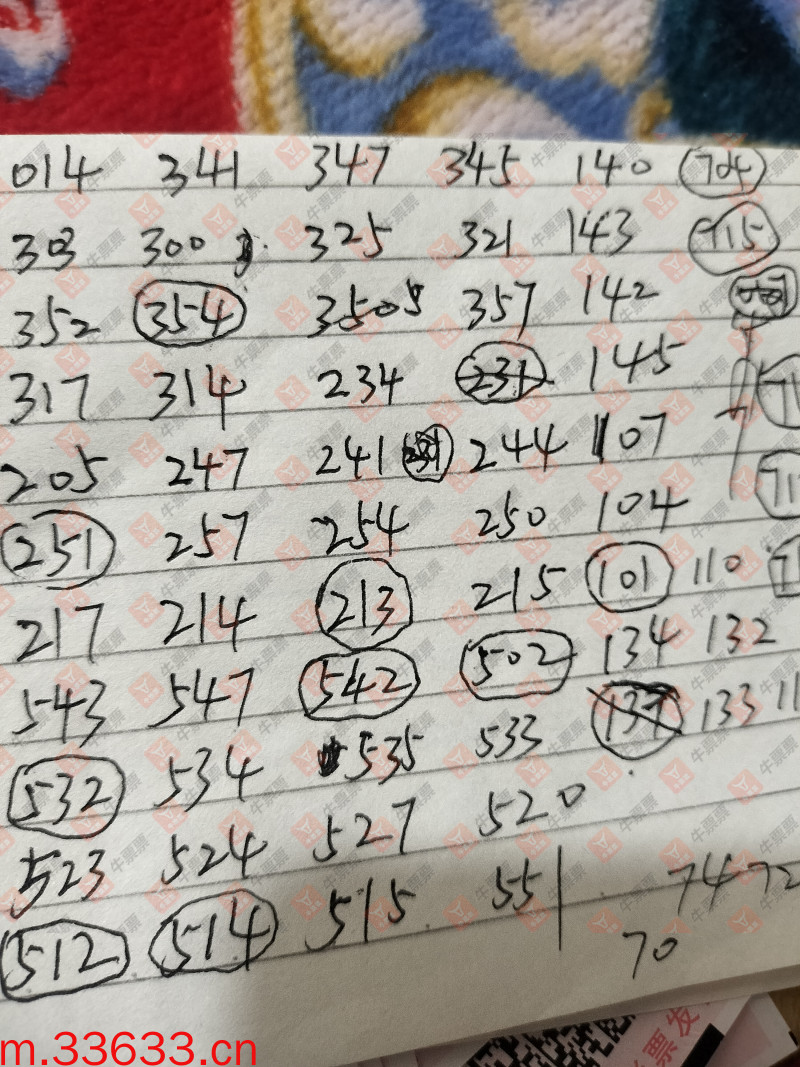 014 341 347 345 140 704
303 300 325 321 143 715
352 354 350 357 142
317 314 234 231 145
205 247 241 244 107
251 257 254 250 104
217 214 213 215 101 110
543 547 542 502 134 132
532 534 535 533 137 133 11
523 524 527 520
512 514 515 551 74 72
70
m.33633.cn
牛票票